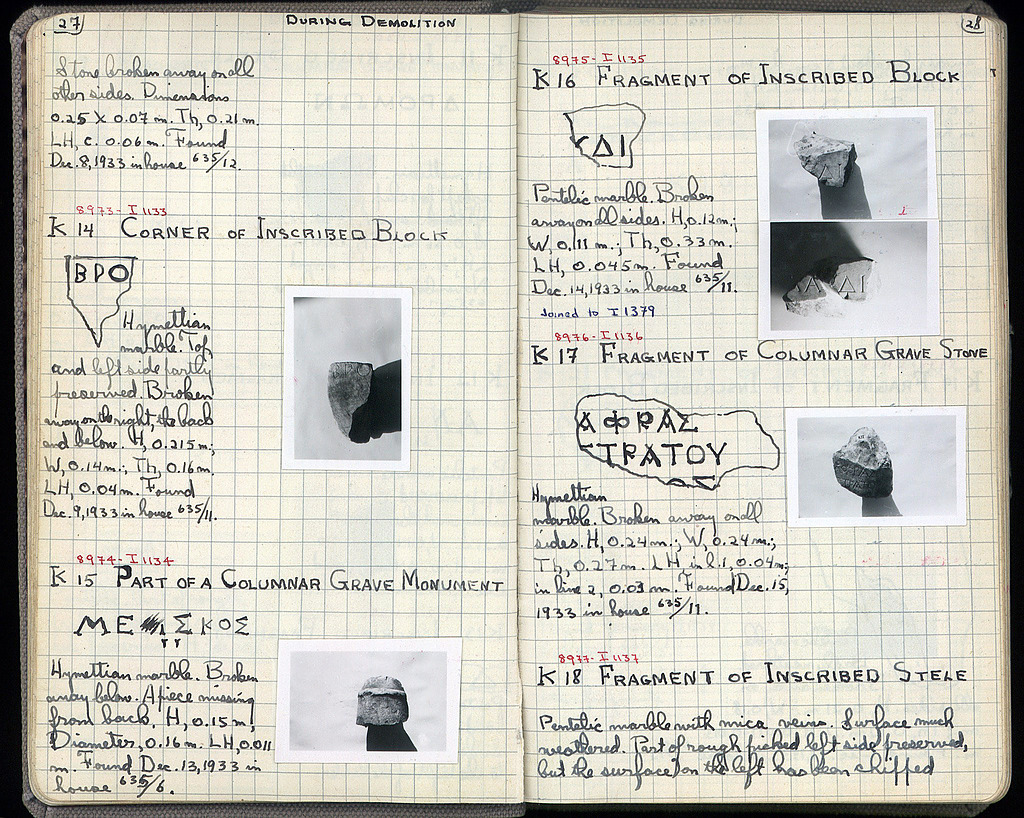 27
DURING DEMOLITION
Stone broken away on all
other sides. Dimensions
0.25 X 0.07 m. Th, 0.21 m.
LH, c. 0.06 m. Found
Dec. 8, 1933 in house 635/12.
8973 - I 1133
K 14 CORNER OF INSCRIBED BLOCK
ΒΡΟ
Hymettian
marble. Top,
and left side partly
preserved. Broken
away on the right, the back
and below. H, 0.215 m;
W, 0.14 m.; Th, 0.16 m.
LH, 0.04 m. Found
Dec. 9, 1933 in house 635/11.
8974 - I 1134
K 15 PART OF A COLUMNAR GRAVE MONUMENT
ΜΕ ΣΚΟΣ
Hymettian marble. Broken
away below. A piece missing
from back. H, 0.15 m;
Diameter, 0.16 m. LH, 0.011
m. Found Dec. 13, 1933 in
house 635/6.
28
8975 - I 1135
K 16 FRAGMENT OF INSCRIBED BLOCK
ΔΙ
Pentelic marble. Broken
away on all sides. H, 0.12 m;
W, 0.11 m.; Th, 0.33 m.
LH, 0.045 m. Found
Dec. 14, 1933 in house 635/11.
Joined to I 1379
8976 - I 1136
K 17 FRAGMENT OF COLUMNAR GRAVE STONE
ΑΦΡΑΣ
ΤΡΑΤΟΥ
ΟΣ
Hymettian
marble. Broken away on all
sides. H, 0.24 m.; W, 0.24 m.;
Th, 0.27 m. LH in l. 1, 0.04 m;
in line 2, 0.03 m. Found Dec. 15,
1933 in house 635/11.
8977 - I 1137
K 18 FRAGMENT OF INSCRIBED STELE
Pentelic marble with mica veins. Surface much
weathered. Part of rough picked left side preserved,
but the surface on the left has been chipped